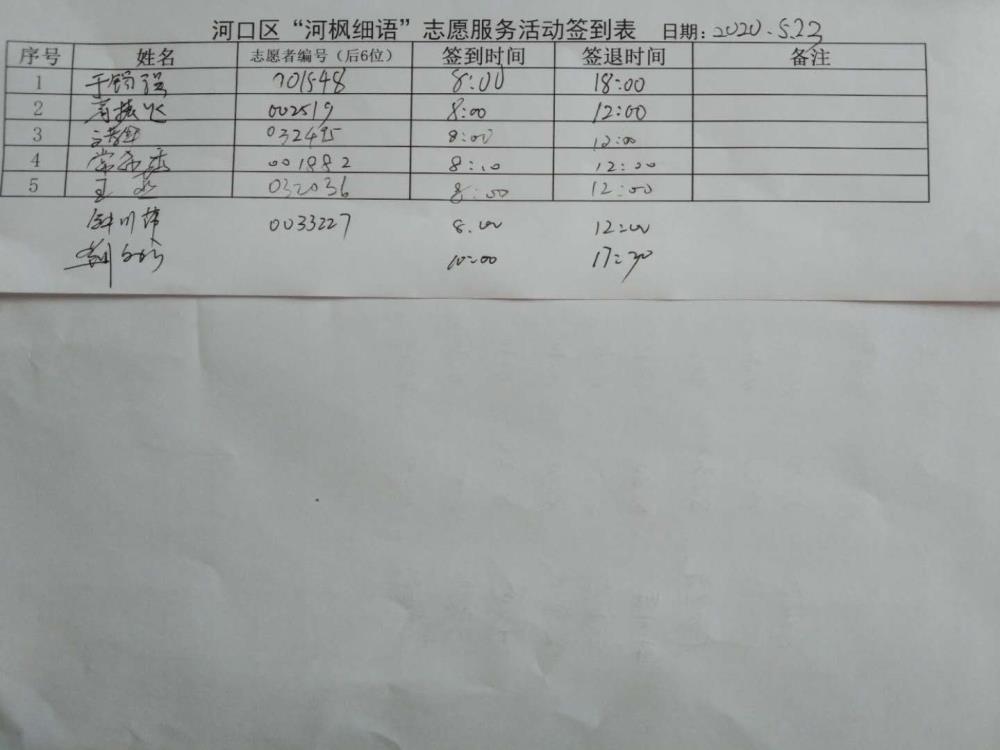 河口区“河枫细语”志愿服务活动签到表 日期：2020.5.23
序号 姓名 志愿者编号（后6位） 签到时间 签退时间 备注
1 于 强 701548 8:00 18:00
2 振飞 002519 8:00 12:00
3 032495 8:00 12:00
4 常 001882 8:00 12:00
5 王 032036 8:00 12:00
钟川 0033227 8:00 12:00
10:00 17:30